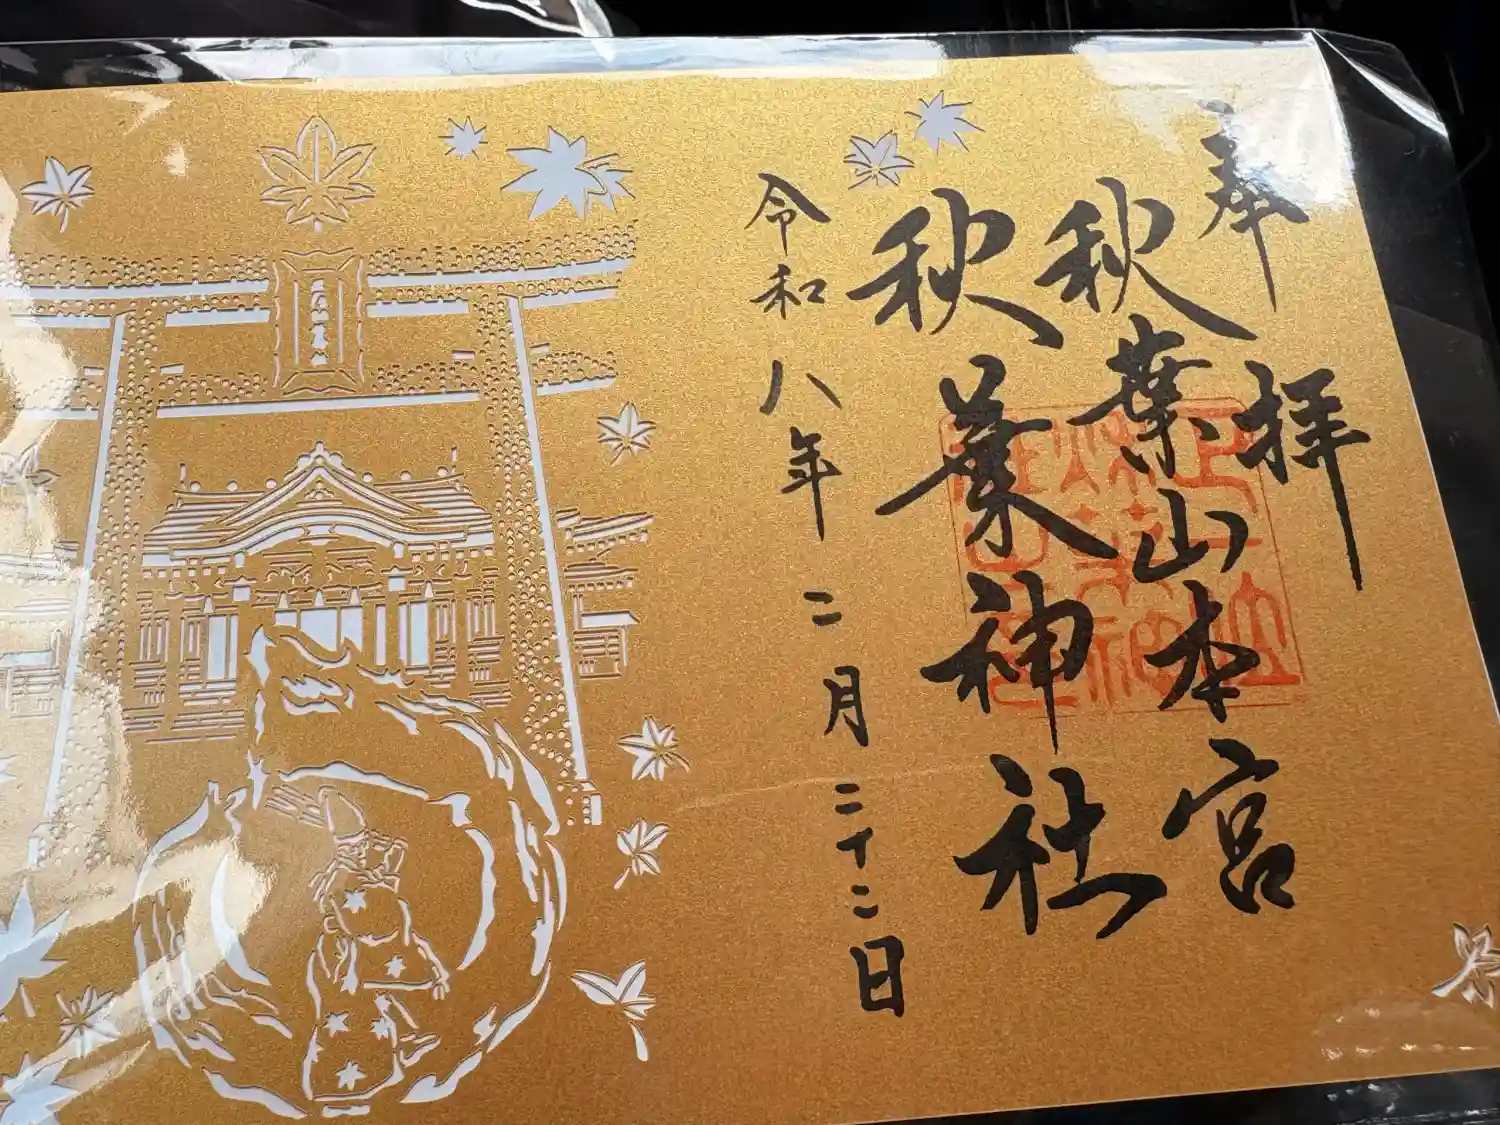 奉拝
秋葉山本宮
秋葉神社
令和八年二月二十二日